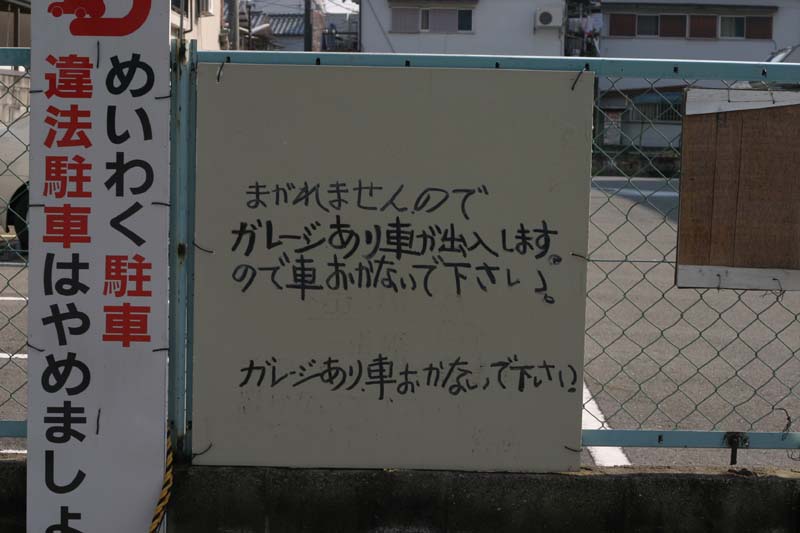 めいわく駐車
違法駐車はやめましょ
まがれませんので
ガレージあり車が出入します。
ので車おかないで下さい。
ガレージあり、車おかないで下さい。